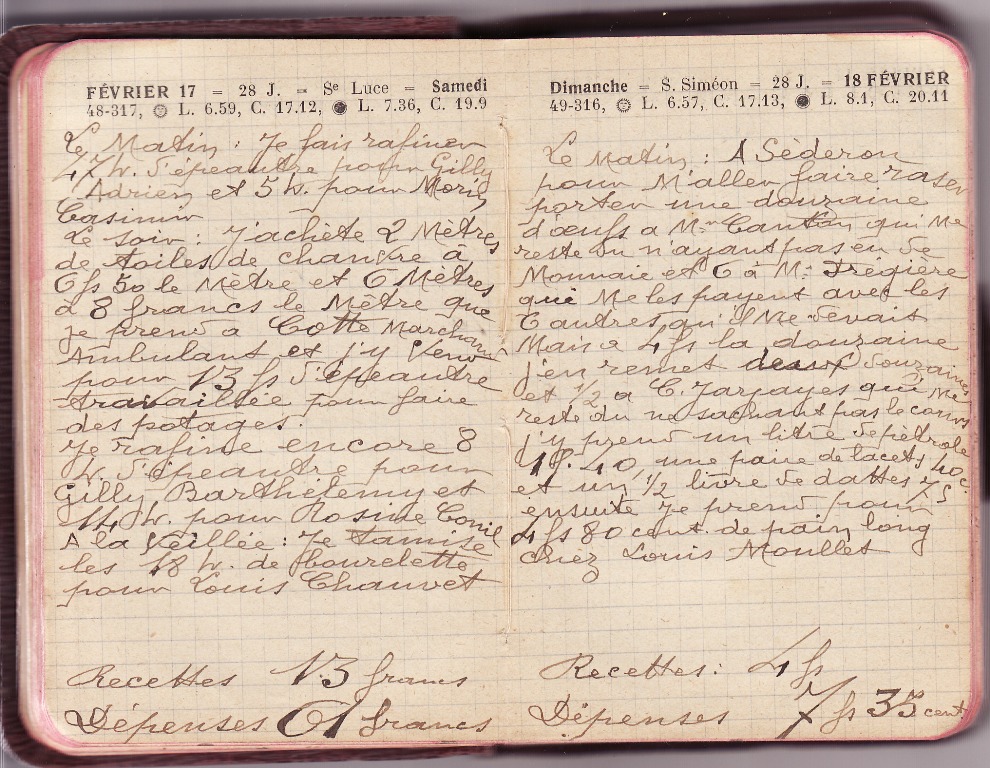 FÉVRIER 17 = 28 J. = Se Luce = Samedi
48-317, L. 6.59, C. 17.12, L. 7.36, C. 19.9
Le Matin : Je fais rafiner
47 K. d'épeautre pour Gilly
Adrien et 5 K. pour Moris
Casimir
Le soir : J'achète 2 Mètres
de toiles de chanvre à
6 fs 50 le Mètre et 6 Mètres
à 8 francs le Mètre que
je prend a Cotte Marchand
Ambulant et j'y vend
pour 13 fs d'épeautre
travaillée pour faire
des potages.
Je rafine encore 8
K. d'épeautre pour
Gilly Barthélemy et
14 K. pour Rosine Conil
A la Veillée : Je tamise
les 18 K. de bourelette
pour Louis Chauvet
Recettes 13 francs
Dépenses 61 francs
Dimanche = S. Siméon = 28 J. = 18 FÉVRIER
49-316, L. 6.57, C. 17.13, L. 8.1, C. 20.11
Le Matin : A Séderon
pour M'aller faire raser
porter une douzaine
d'œufs a Mr qui Me
reste du n'ayant pas eu de
Monnaie et 6 à Mr Frégière
qui Me les payent avec les
6 autres qu'il Me devait
Mais a 4 fs la douzaine
j'en remet deux douzaines
et 1/2 a C. Jarjayes qui me
reste du ne sachant pas le cours
j'y prend un litre de pétrole
1 f. 40, une paire de lacets 40 c.
et un 1/2 livre de dattes 75
ensuite je prend pour
4 fs 80 cent. de pain long
chez Louis Moullet
Recettes : 4 fs
Dépenses 7 fs 35 cent.